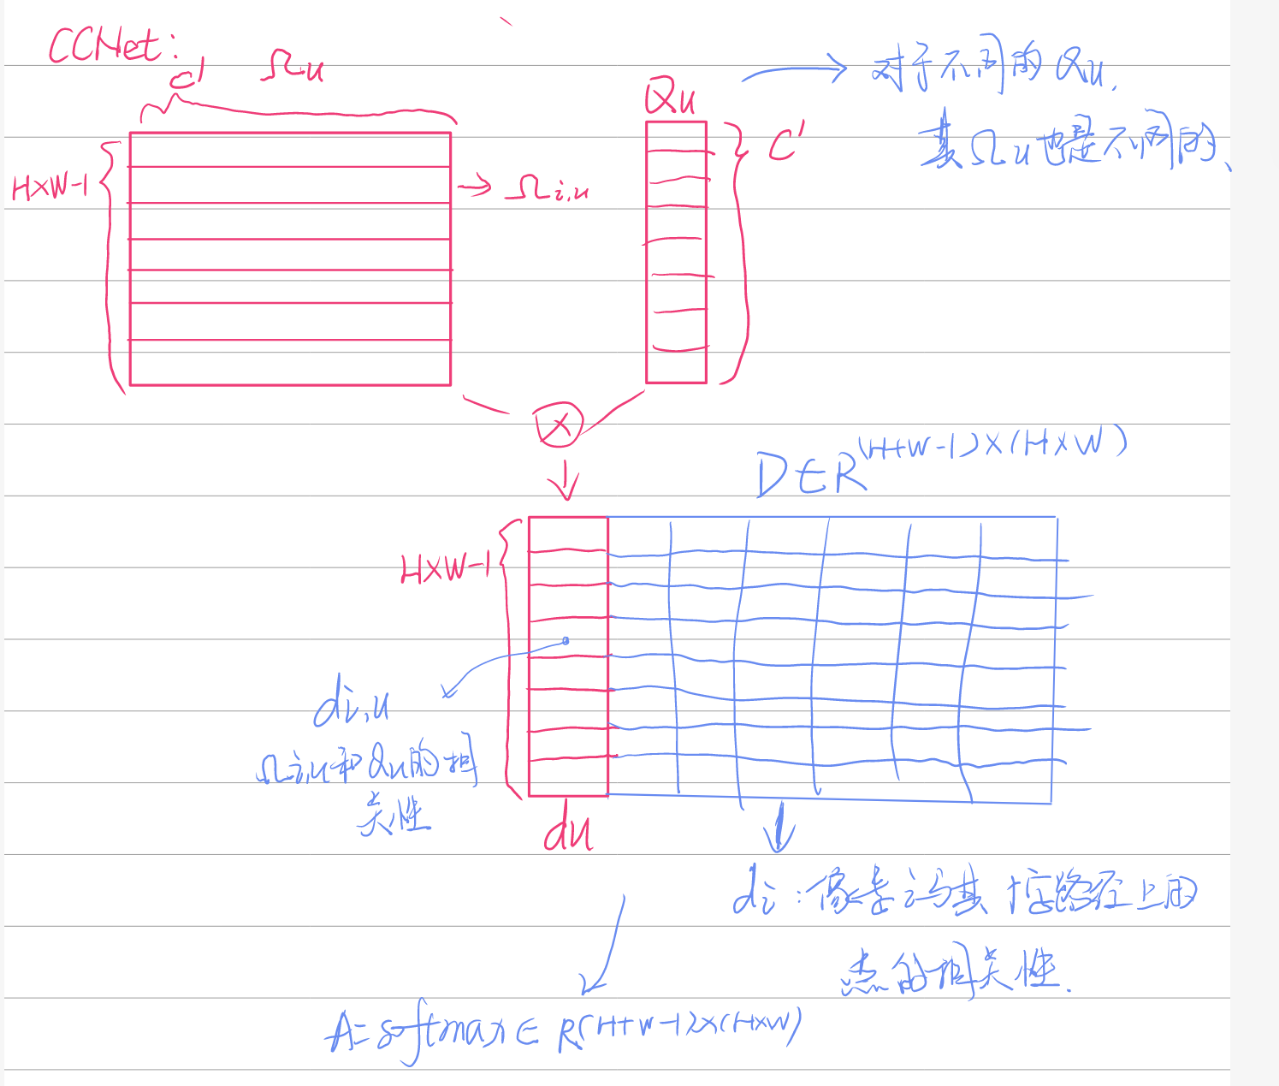 CCNet:
C' Ωu
H×W-1
→ Ωi,u
Qu
C'
→ 对于不同的 Qu,
其 Ωu 也是不同的、
⊗
D∈R^(H+W-1)×(H×W)
H×W-1
di,u
Ωi,u和Qu的相
关性
du
di:像素i与其十字路径上的
点的相关性.
A=softmax∈R^(H+W-1)×(H×W)